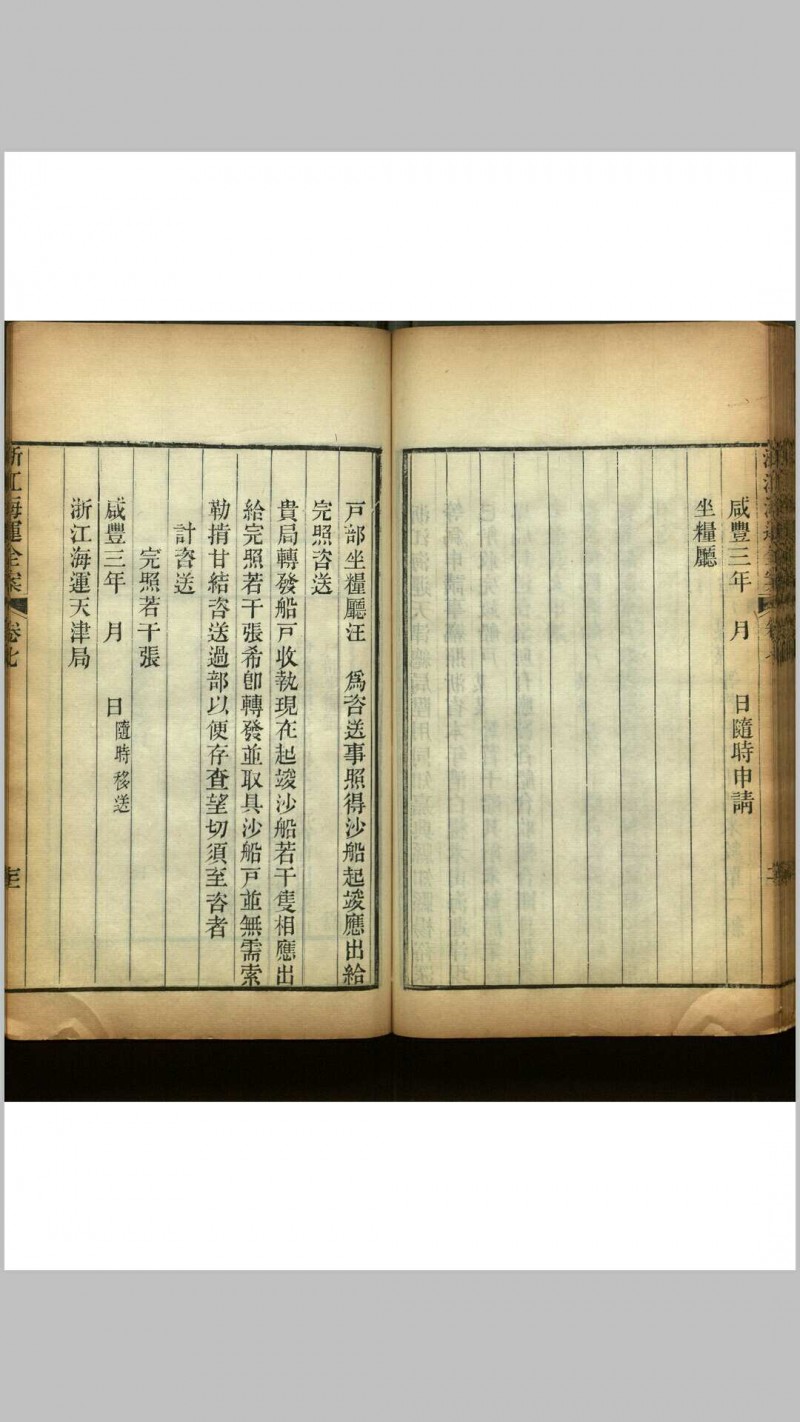 咸豐三年　月　　日隨時申請
坐糧廳
戸部坐糧廳汪　爲咨送事照得沙船起竣應出給
完照咨送
貴局轉發船戸收執現在起竣沙船若干隻相應出
給完照若干張希卽轉發並取具沙船戸並無需索
勒掯甘結咨送過部以便存查望切須至咨者
計咨送
完照若干張
咸豐三年　月　　日隨時移送
浙江海運天津局
浙江海運全案
卷七